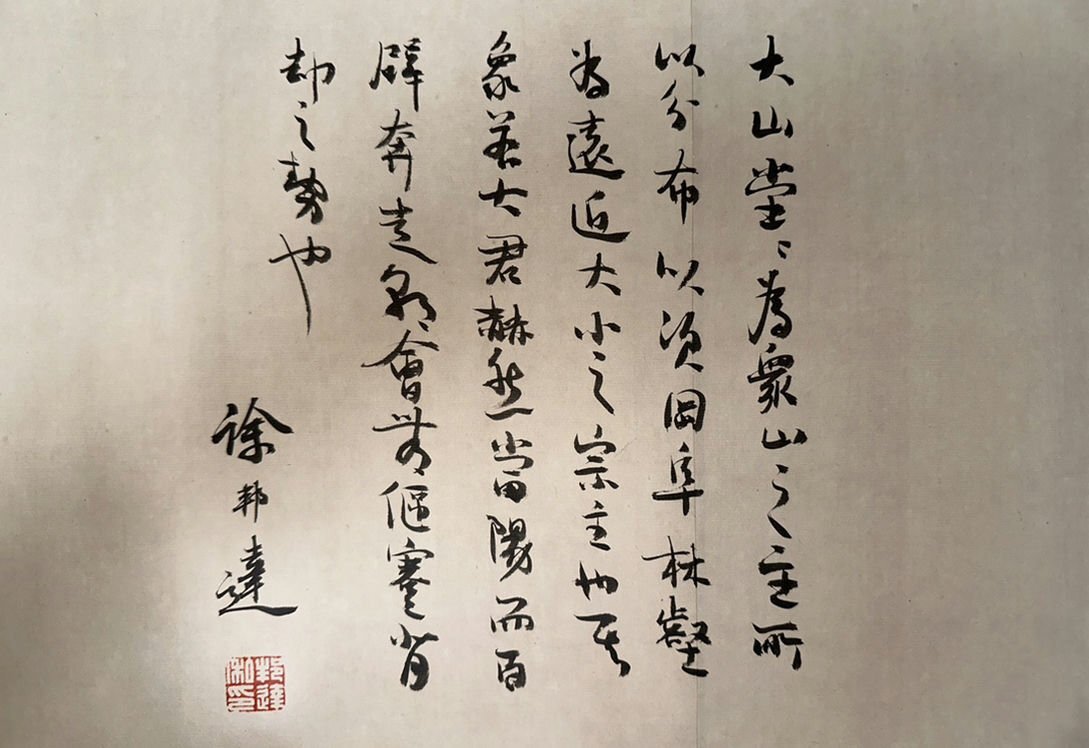 大山堂〻為衆山之主所
以分布以次岡阜林壑
為遠近大小之宗主也其
象若大君赫然當陽而百
辟奔走朝會無偃蹇背
却之勢也
徐邦達
邦達私印